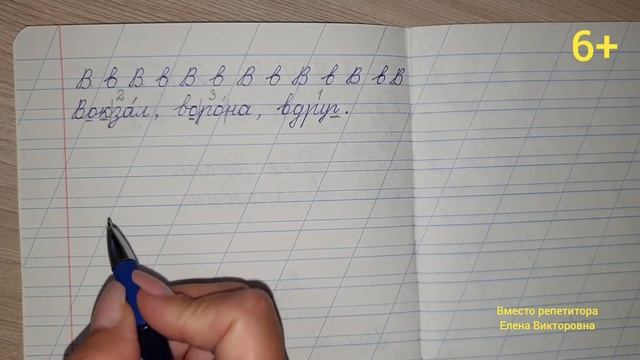 6+
В в В в В в В в В в В в В
Вокза́л, воро́на, вдруг.
2 3 1
Вместо репетитора
Елена Викторовна